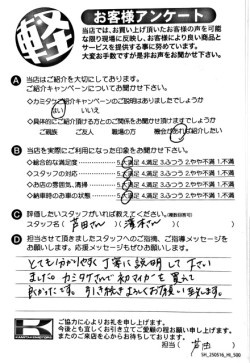 軽
お客様アンケート
当店では、お買い上げ頂いたお客様の声を可能
な限り現場に反映し、お客様により良い商品と
サービスを提供する事に努めています。
大変お手数ですが是非お声をお聞かせ下さい。
A 当店はご紹介を大切にしております。
ご紹介キャンペーンについてお聞かせ下さい。
◇カミタケご紹介キャンペーンのご説明はありましたでしょうか
はい いいえ
◇具体的にご紹介頂ける方とのご関係をお聞かせ頂けますでしょうか
ご親族 ご友人 職場の方 機会があれば紹介したい
B 当店を実際にご利用になった印象をお聞かせ下さい。
◇総合的な満足度 5.大満足 4.満足 3.ふつう 2.やや不満 1.不満
◇スタッフの対応 5.大満足 4.満足 3.ふつう 2.やや不満 1.不満
◇お店の雰囲気、清掃 5.大満足 4.満足 3.ふつう 2.やや不満 1.不満
◇納車時のお車の状態 5.大満足 4.満足 3.ふつう 2.やや不満 1.不満
C 評価したいスタッフがいれば教えてください。(複数回答可)
スタッフ名( 芦田さん )( 澤本さん )( )
D 担当させて頂きましたスタッフへのご指摘、ご指導メッセージを
お願いします。応援メッセージもぜひお願いします。
とても分かりやすく丁寧に説明して下さい
ました。カミタケさんで初マイカーを買えて
良かったです。引き続きよろしくお願い致します。
ご協力に心よりお礼を申し上げます。
今後とも宜しくお引き立てご愛顧の程お願い申し上げます。
またのご来店を心からお待ち申し上げております。
担当( 芦田 )